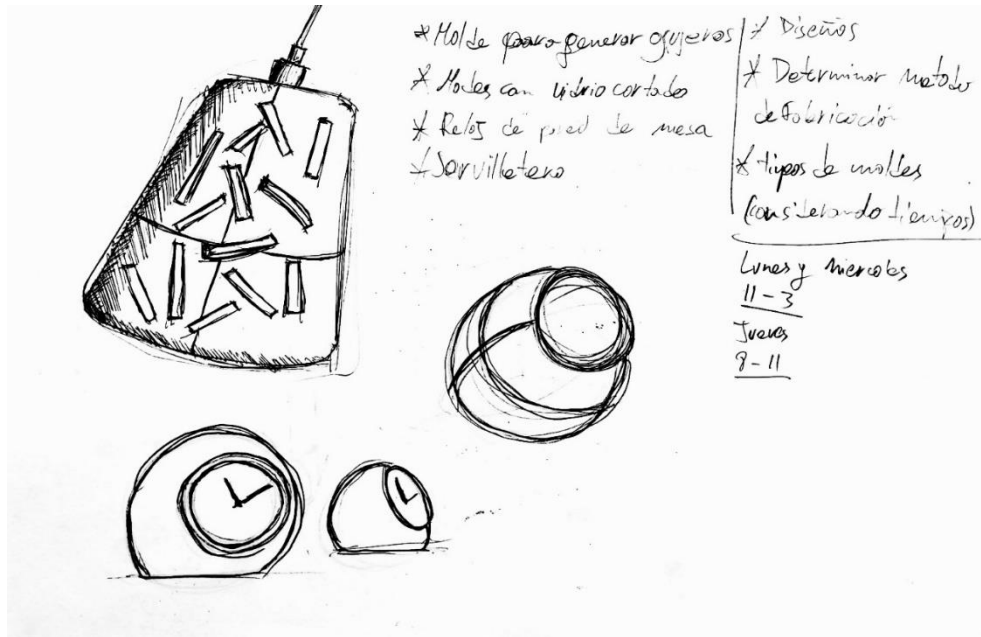 * Molde para generar agujeros
* Moldes con vidrio cortado
* Reloj de pared de mesa
* Servilletero
* Diseños
* Determinar metodo
de Fabricación
* tipos de moldes
(considerando tiempos)
Lunes y Miercoles
11-3
Jueves
8-11